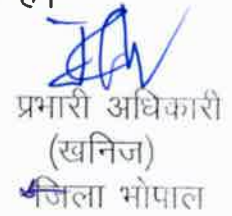 प्रभारी अधिकारी
(खनिज)
जिला भोपाल